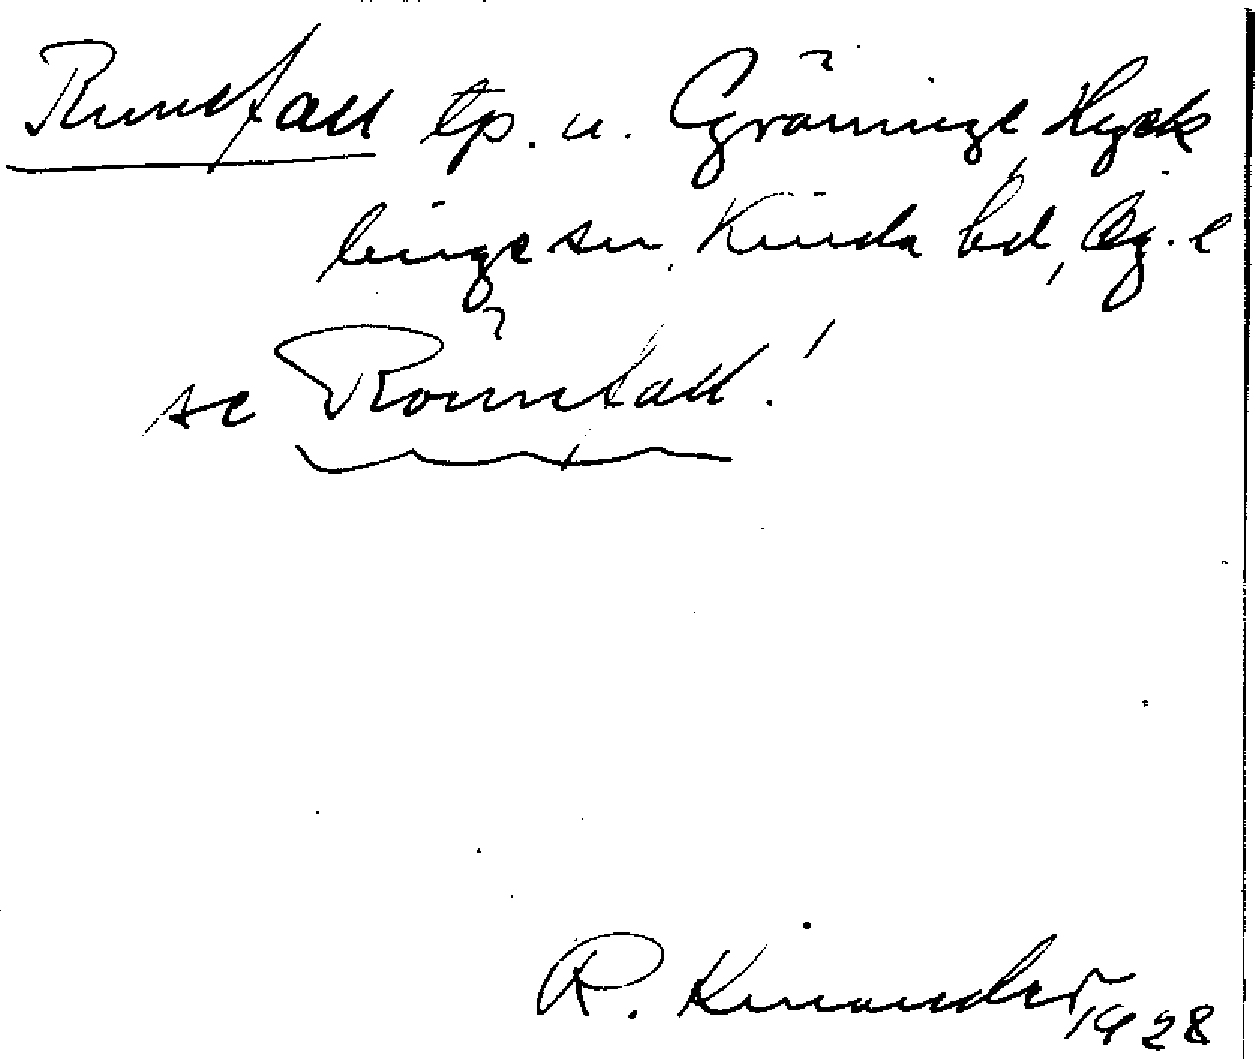 Runefall tp. u. Gröninge Hyck
linge sn, Kinda hd, Ög. l
se Rönnefall!
R. Kinander 1928